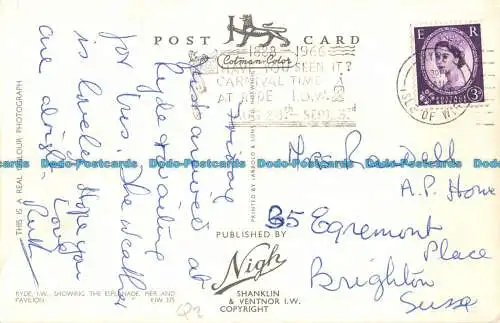 POST CARD
Cotman-Color
1868 - 1966
HAVE YOU SEEN IT?
CARNIVAL TIME
AT RYDE I.O.W.
E R
3D
ISLE OF
Friday
Just arrived at
Ryde & waiting
for bus. The weather
is lovely. Hope you
are alright.
Love
Ruth
A.P. Howe
35 Egremont
Place
Brighton
Sussex
THIS IS A REAL COLOUR PHOTOGRAPH
PRINTED BY JARROLD & SONS
PUBLISHED BY
Nigh
SHANKLIN
& VENTNOR I.W.
COPYRIGHT
RYDE, I.W., SHOWING THE ESPLANADE, PIER AND
PAVILION KIW 175
Dodo-Postcards Dodo-Postcards Dodo-Postcards Dodo-Postcards Dodo-Postcards